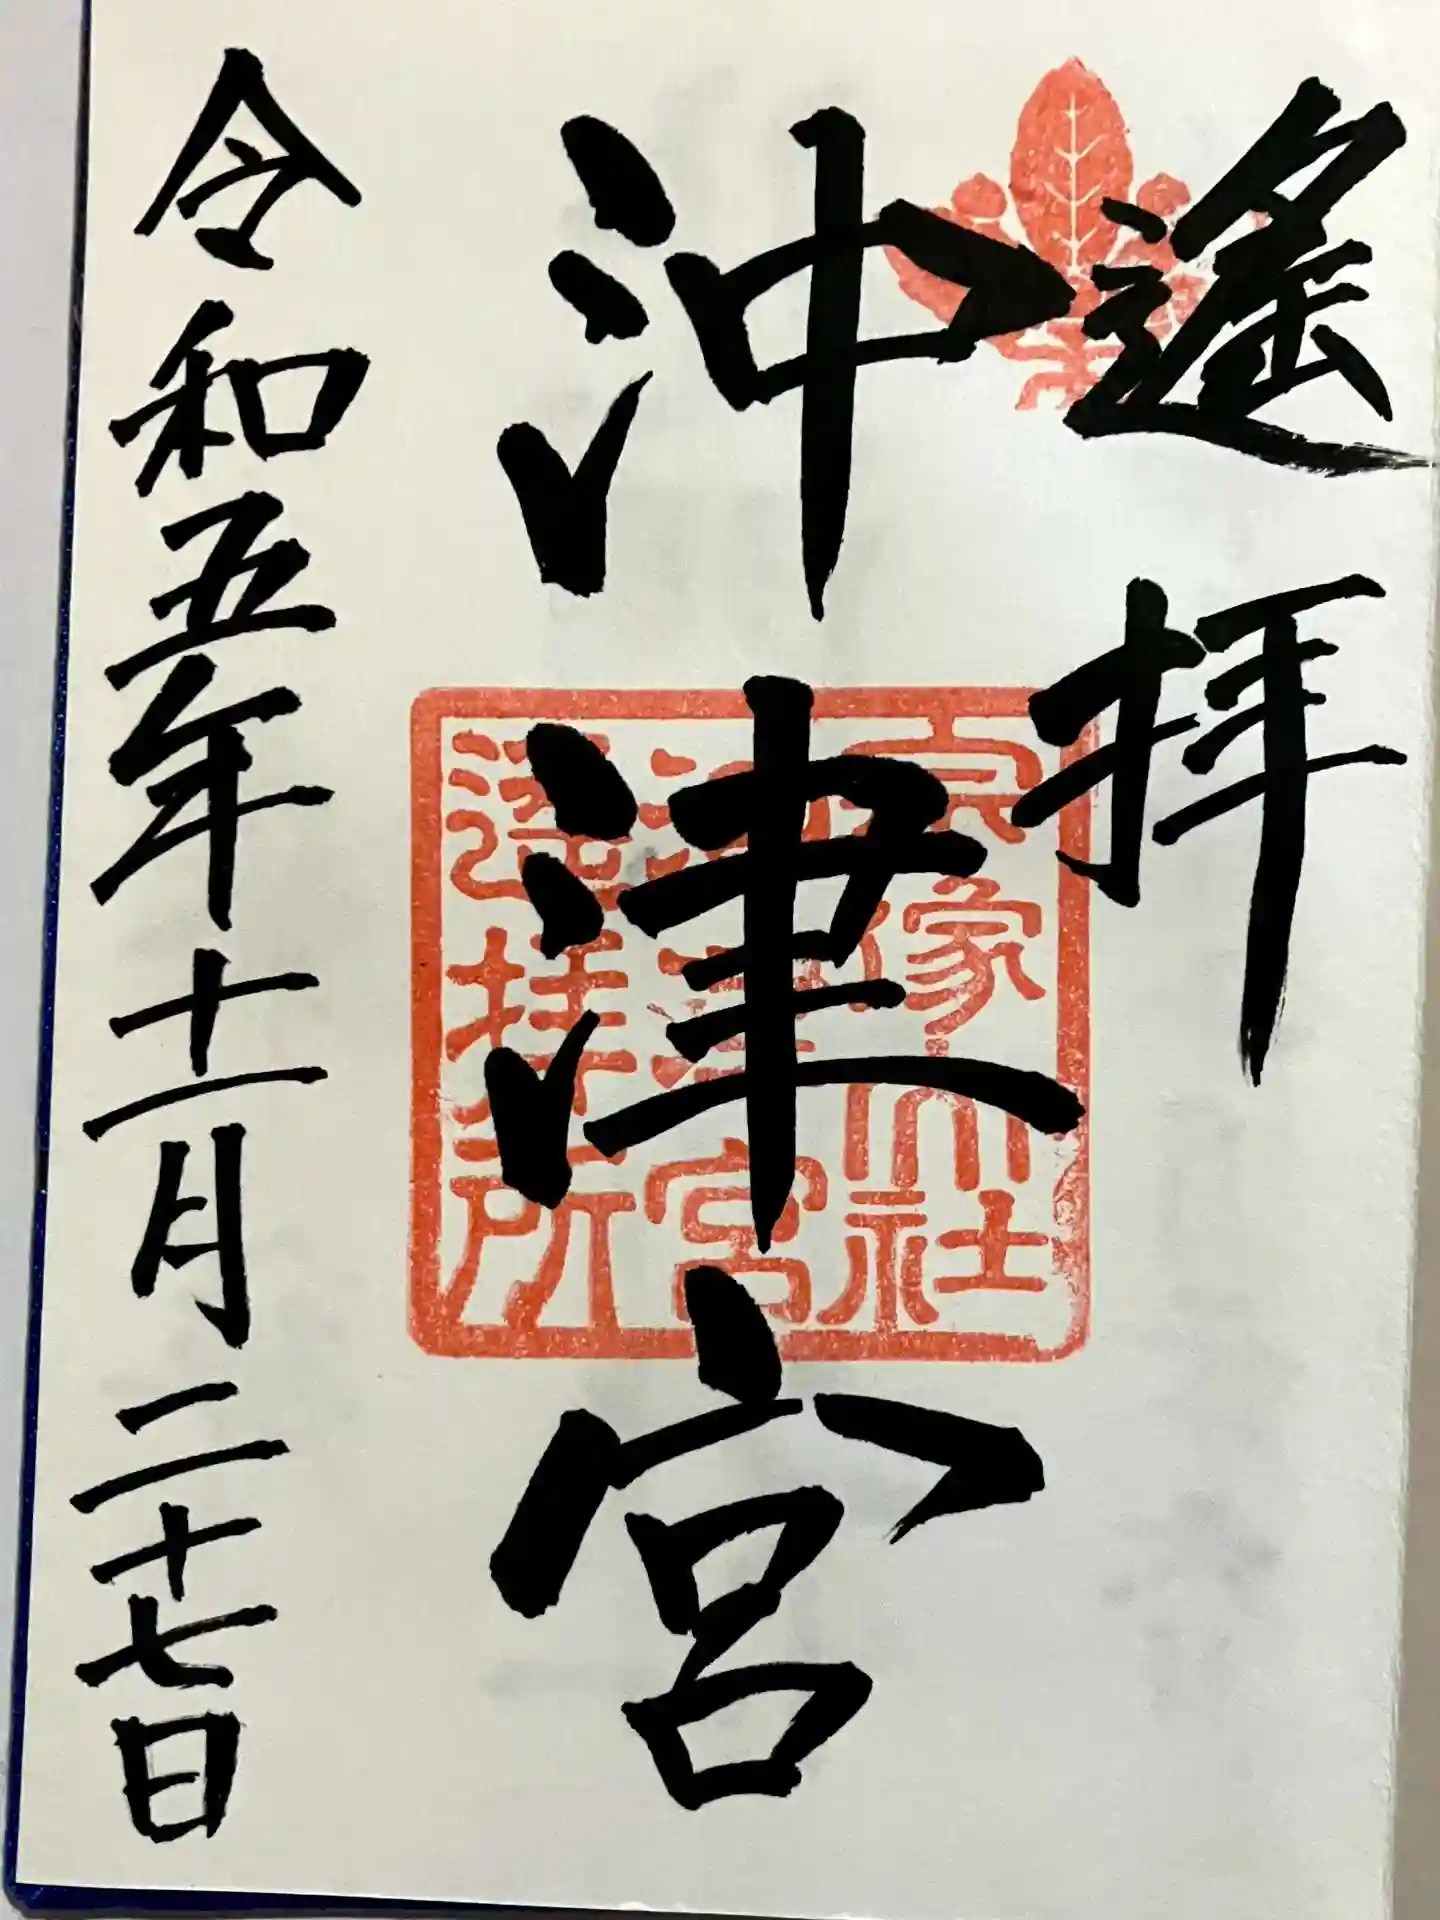 遙拝
沖津宮
令和五年十一月二十七日
宗像大社
沖津宮
遙拝所